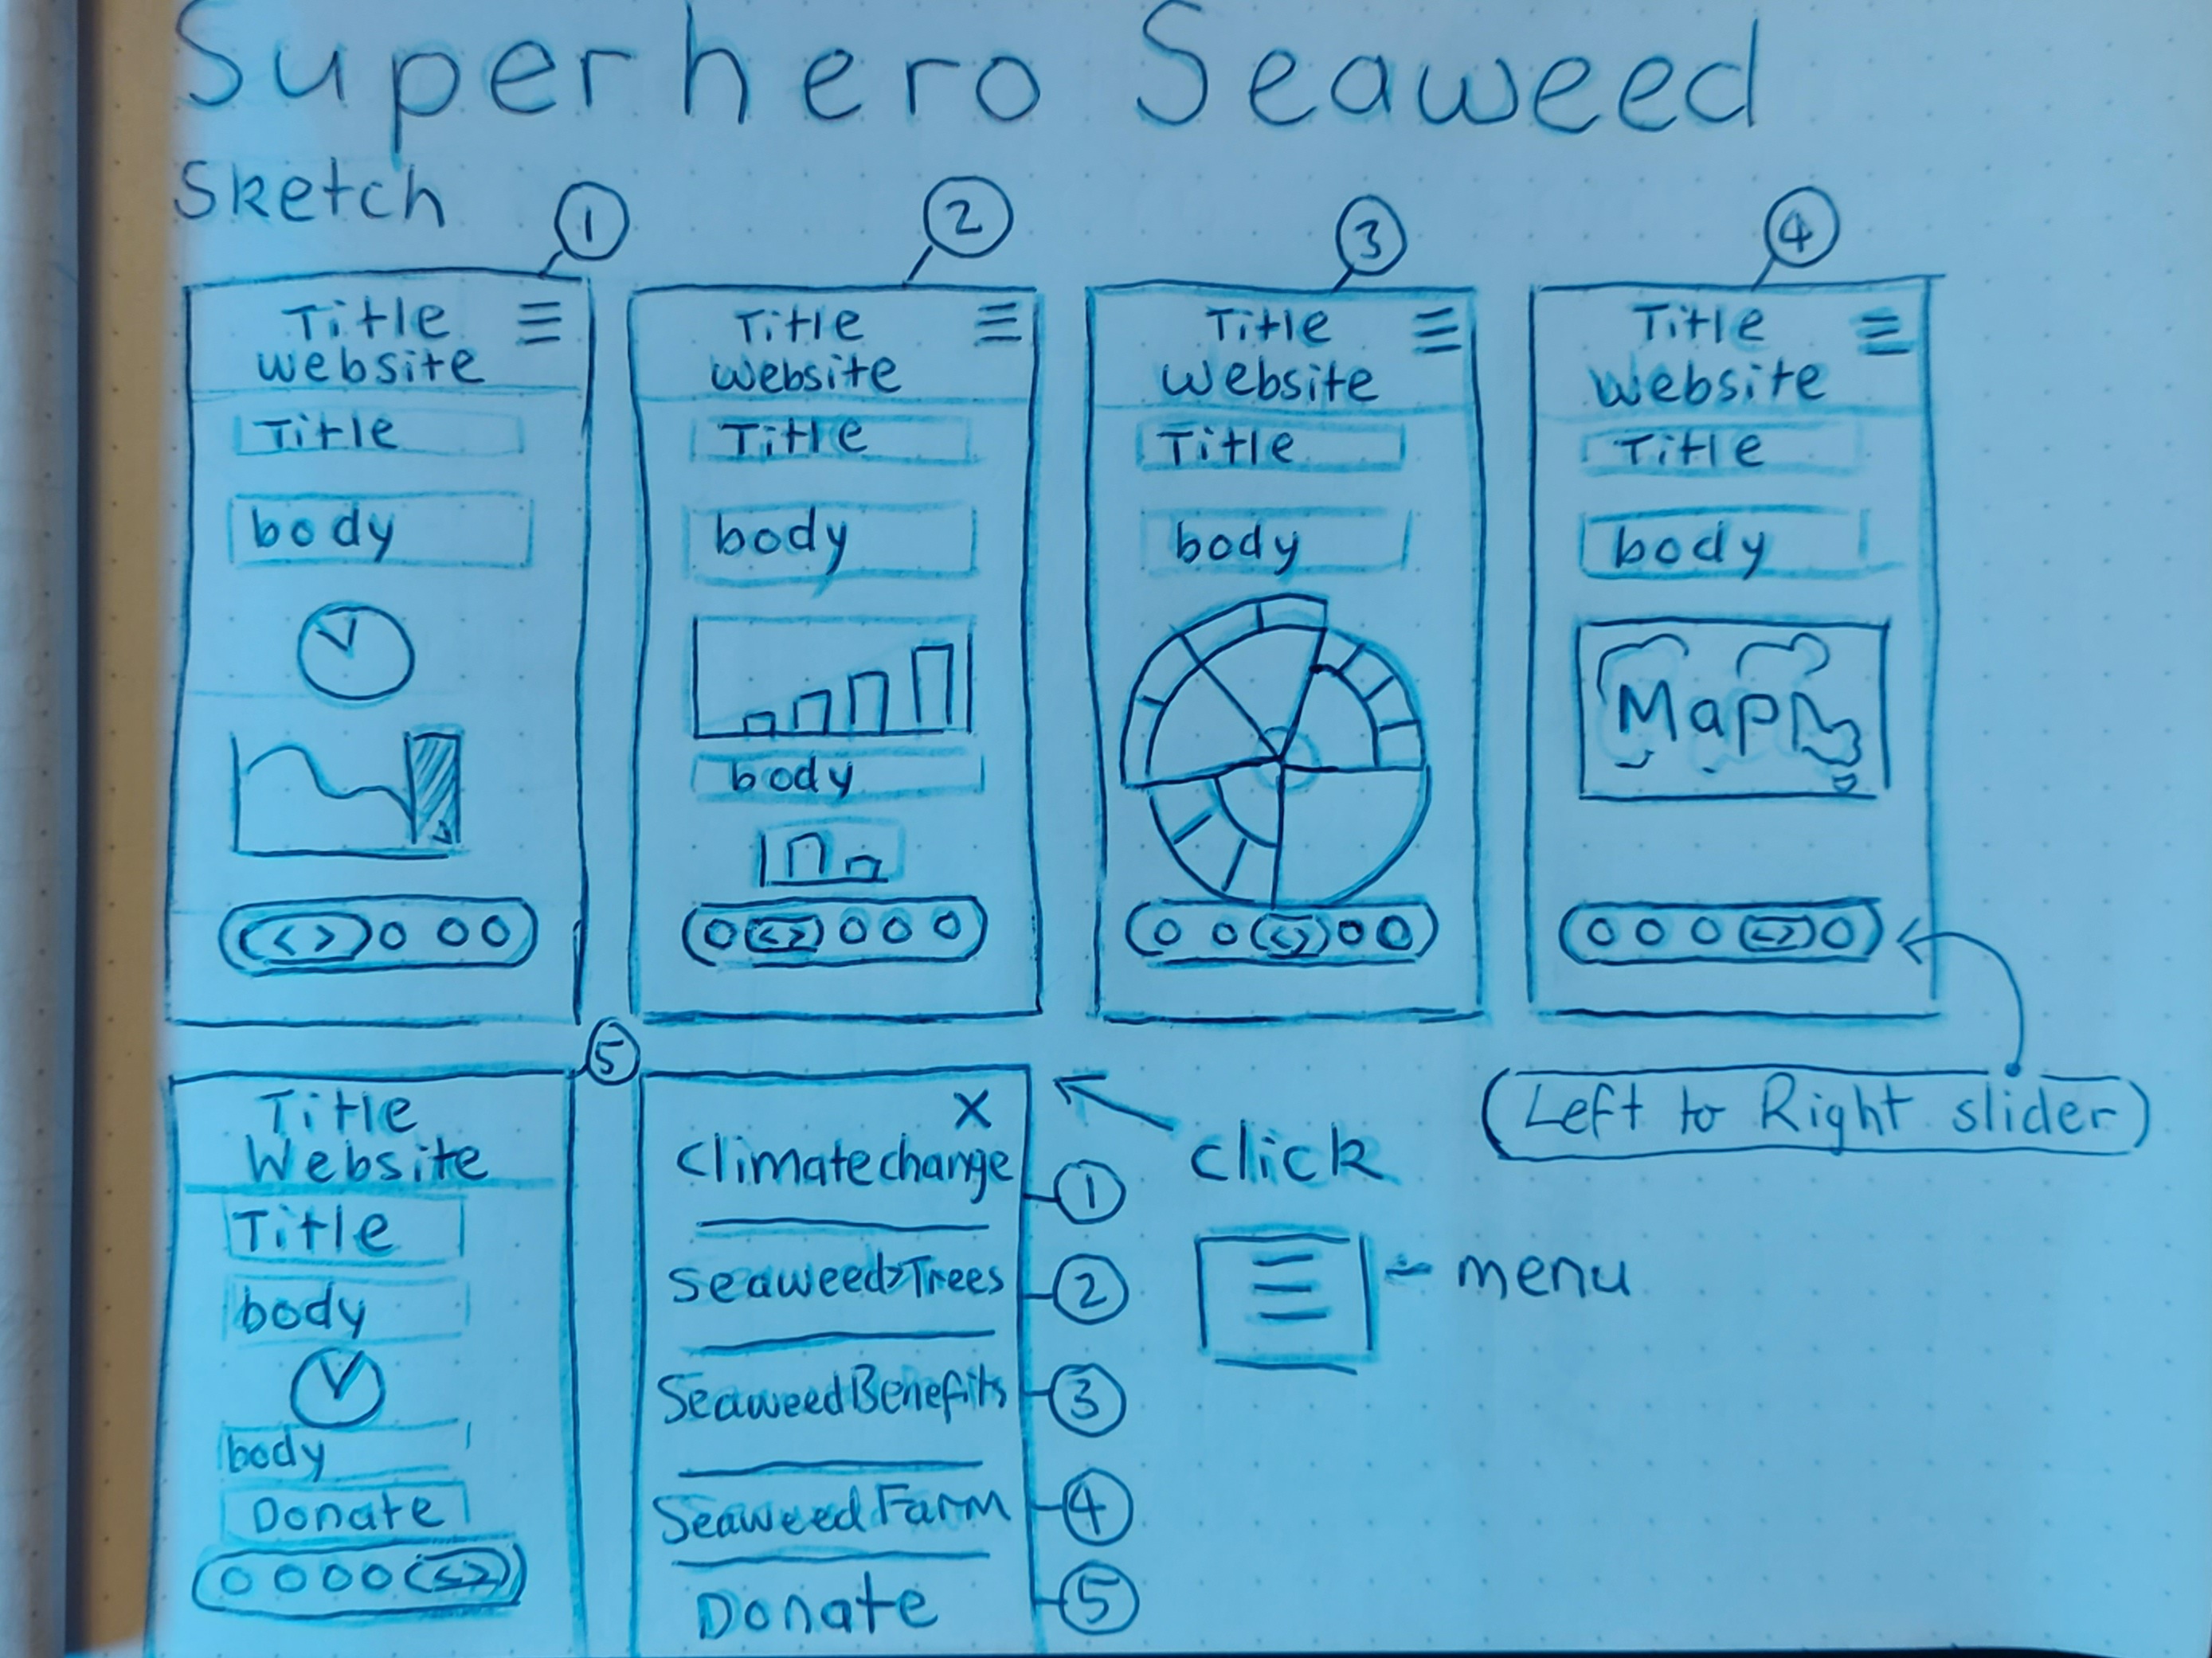 Superhero Seaweed
Sketch
1
Title
Website
Title
body
< >
2
Title
Website
Title
body
body
< >
3
Title
Website
Title
body
< >
4
Title
Website
Title
body
Map
< >
Left to Right slider
5
Title
Website
Title
body
body
Donate
< >
X
Climate change
1
Seaweed>Trees
2
Seaweed Benefits
3
Seaweed Farm
4
Donate
5
click
menu